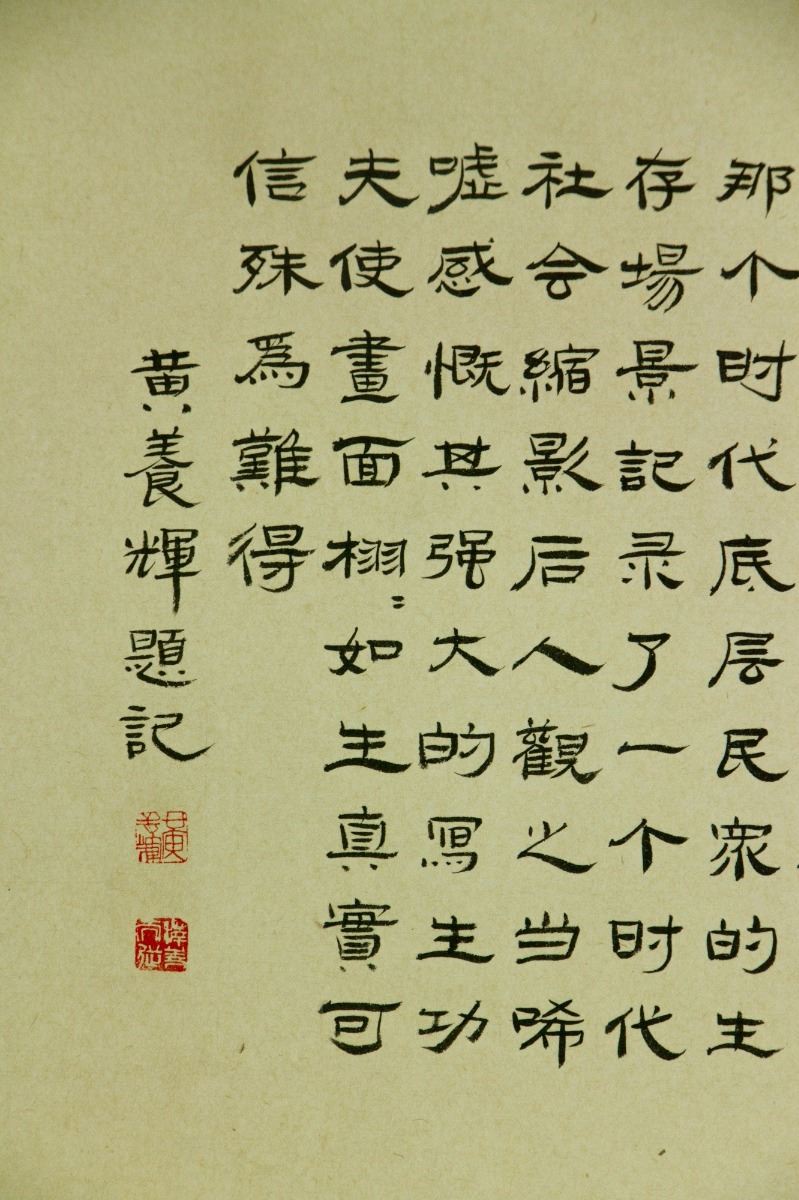 那个时代底层民衆的生
存場景記录了一个时代
社会縮影后人觀之当唏
嘘感慨其强大的写生功
夫使畫面栩〻如生真實可
信殊爲難得
黄養輝題記